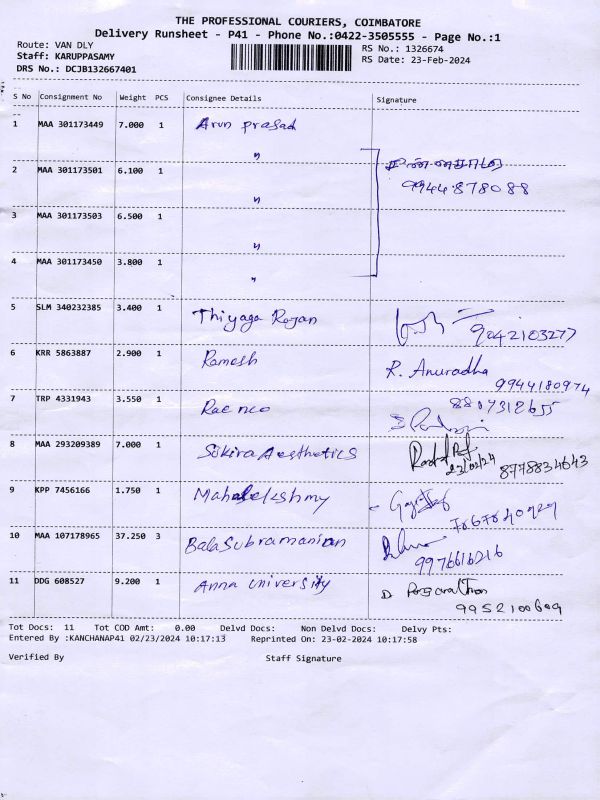 THE PROFESSIONAL COURIERS, COIMBATORE
Delivery Runsheet - P41 - Phone No.:0422-3505555 - Page No.:1
Route: VAN DLY
Staff: KARUPPASAMY
DRS No.: DCJB132667401
RS No.: 1326674
RS Date: 23-Feb-2024
S No Consignment No Weight PCS Consignee Details Signature
1 MAA 301173449 7.000 1 Arun prasad
2 MAA 301173501 6.100 1 " 9944878088
3 MAA 301173503 6.500 1 "
4 MAA 301173450 3.800 1 "
5 SLM 340232385 3.400 1 Thiyaga Rajan 9042103277
6 KRR 5863887 2.900 1 Ramesh R. Anuradha 9944180974
7 TRP 4331943 3.550 1 Rae nco 8807312655
8 MAA 293209389 7.000 1 Sakira Aesthetics 23/02/24 8778834643
9 KPP 7456166 1.750 1 Mahalekshmy
10 MAA 107178965 37.250 3 BalaSubramanian 9976616216
11 DDG 608527 9.200 1 Anna University 9952100609
Tot Docs: 11 Tot COD Amt: 0.00 Delvd Docs: Non Delvd Docs: Delvy Pts:
Entered By :KANCHANAP41 02/23/2024 10:17:13 Reprinted On: 23-02-2024 10:17:58
Verified By Staff Signature